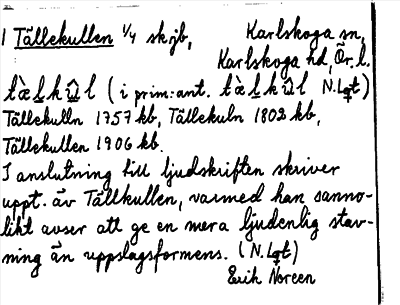 1 Tällekullen 1/4 skjb, Karlskoga sn,
Karlskoga hd, Ör. l.
tæ̀lkûl (i prim:ant. tæ̀lkûl N.Lqt)
Tällekulln 1757 kb, Tällekuln 1802 kb,
Tällekullen 1906 kb.
I anslutning till ljudskriften skriver
uppt. äv Tällkullen, varmed han sanno-
likt avser att ge en mera ljudenlig stav-
ning än uppslagsformens. (N.Lqt)
Erik Noreen